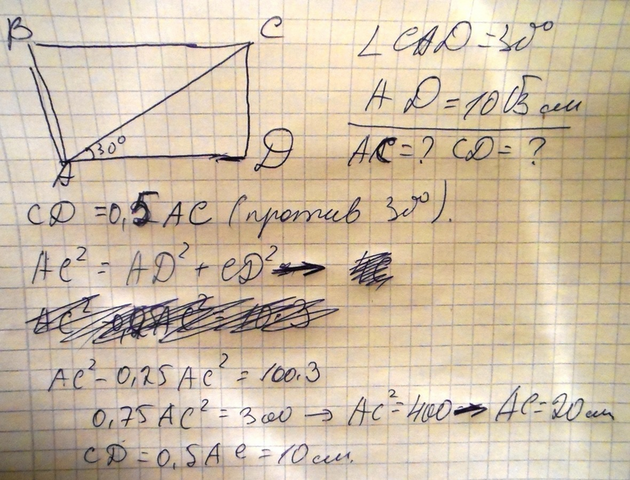 B C
∠CAD = 30°
AD = 10√3 см
AC = ? CD = ?
30°
A D
CD = 0,5 AC (против 30°).
AC² = AD² + CD² →
AC² - 0,25 AC² = 100·3
0,75 AC² = 300 → AC² = 400 → AC = 20 см
CD = 0,5 AC = 10 см.